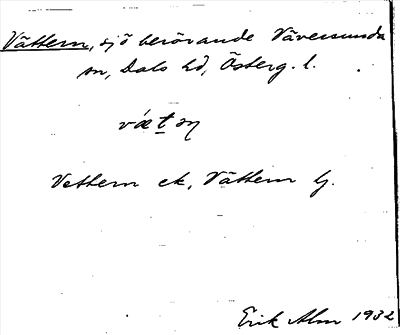 Vättern, sjö berörande Väversunda
sn, Dals hd, Österg. l.
Vettern ek, Vättern
Erik Alm 1932